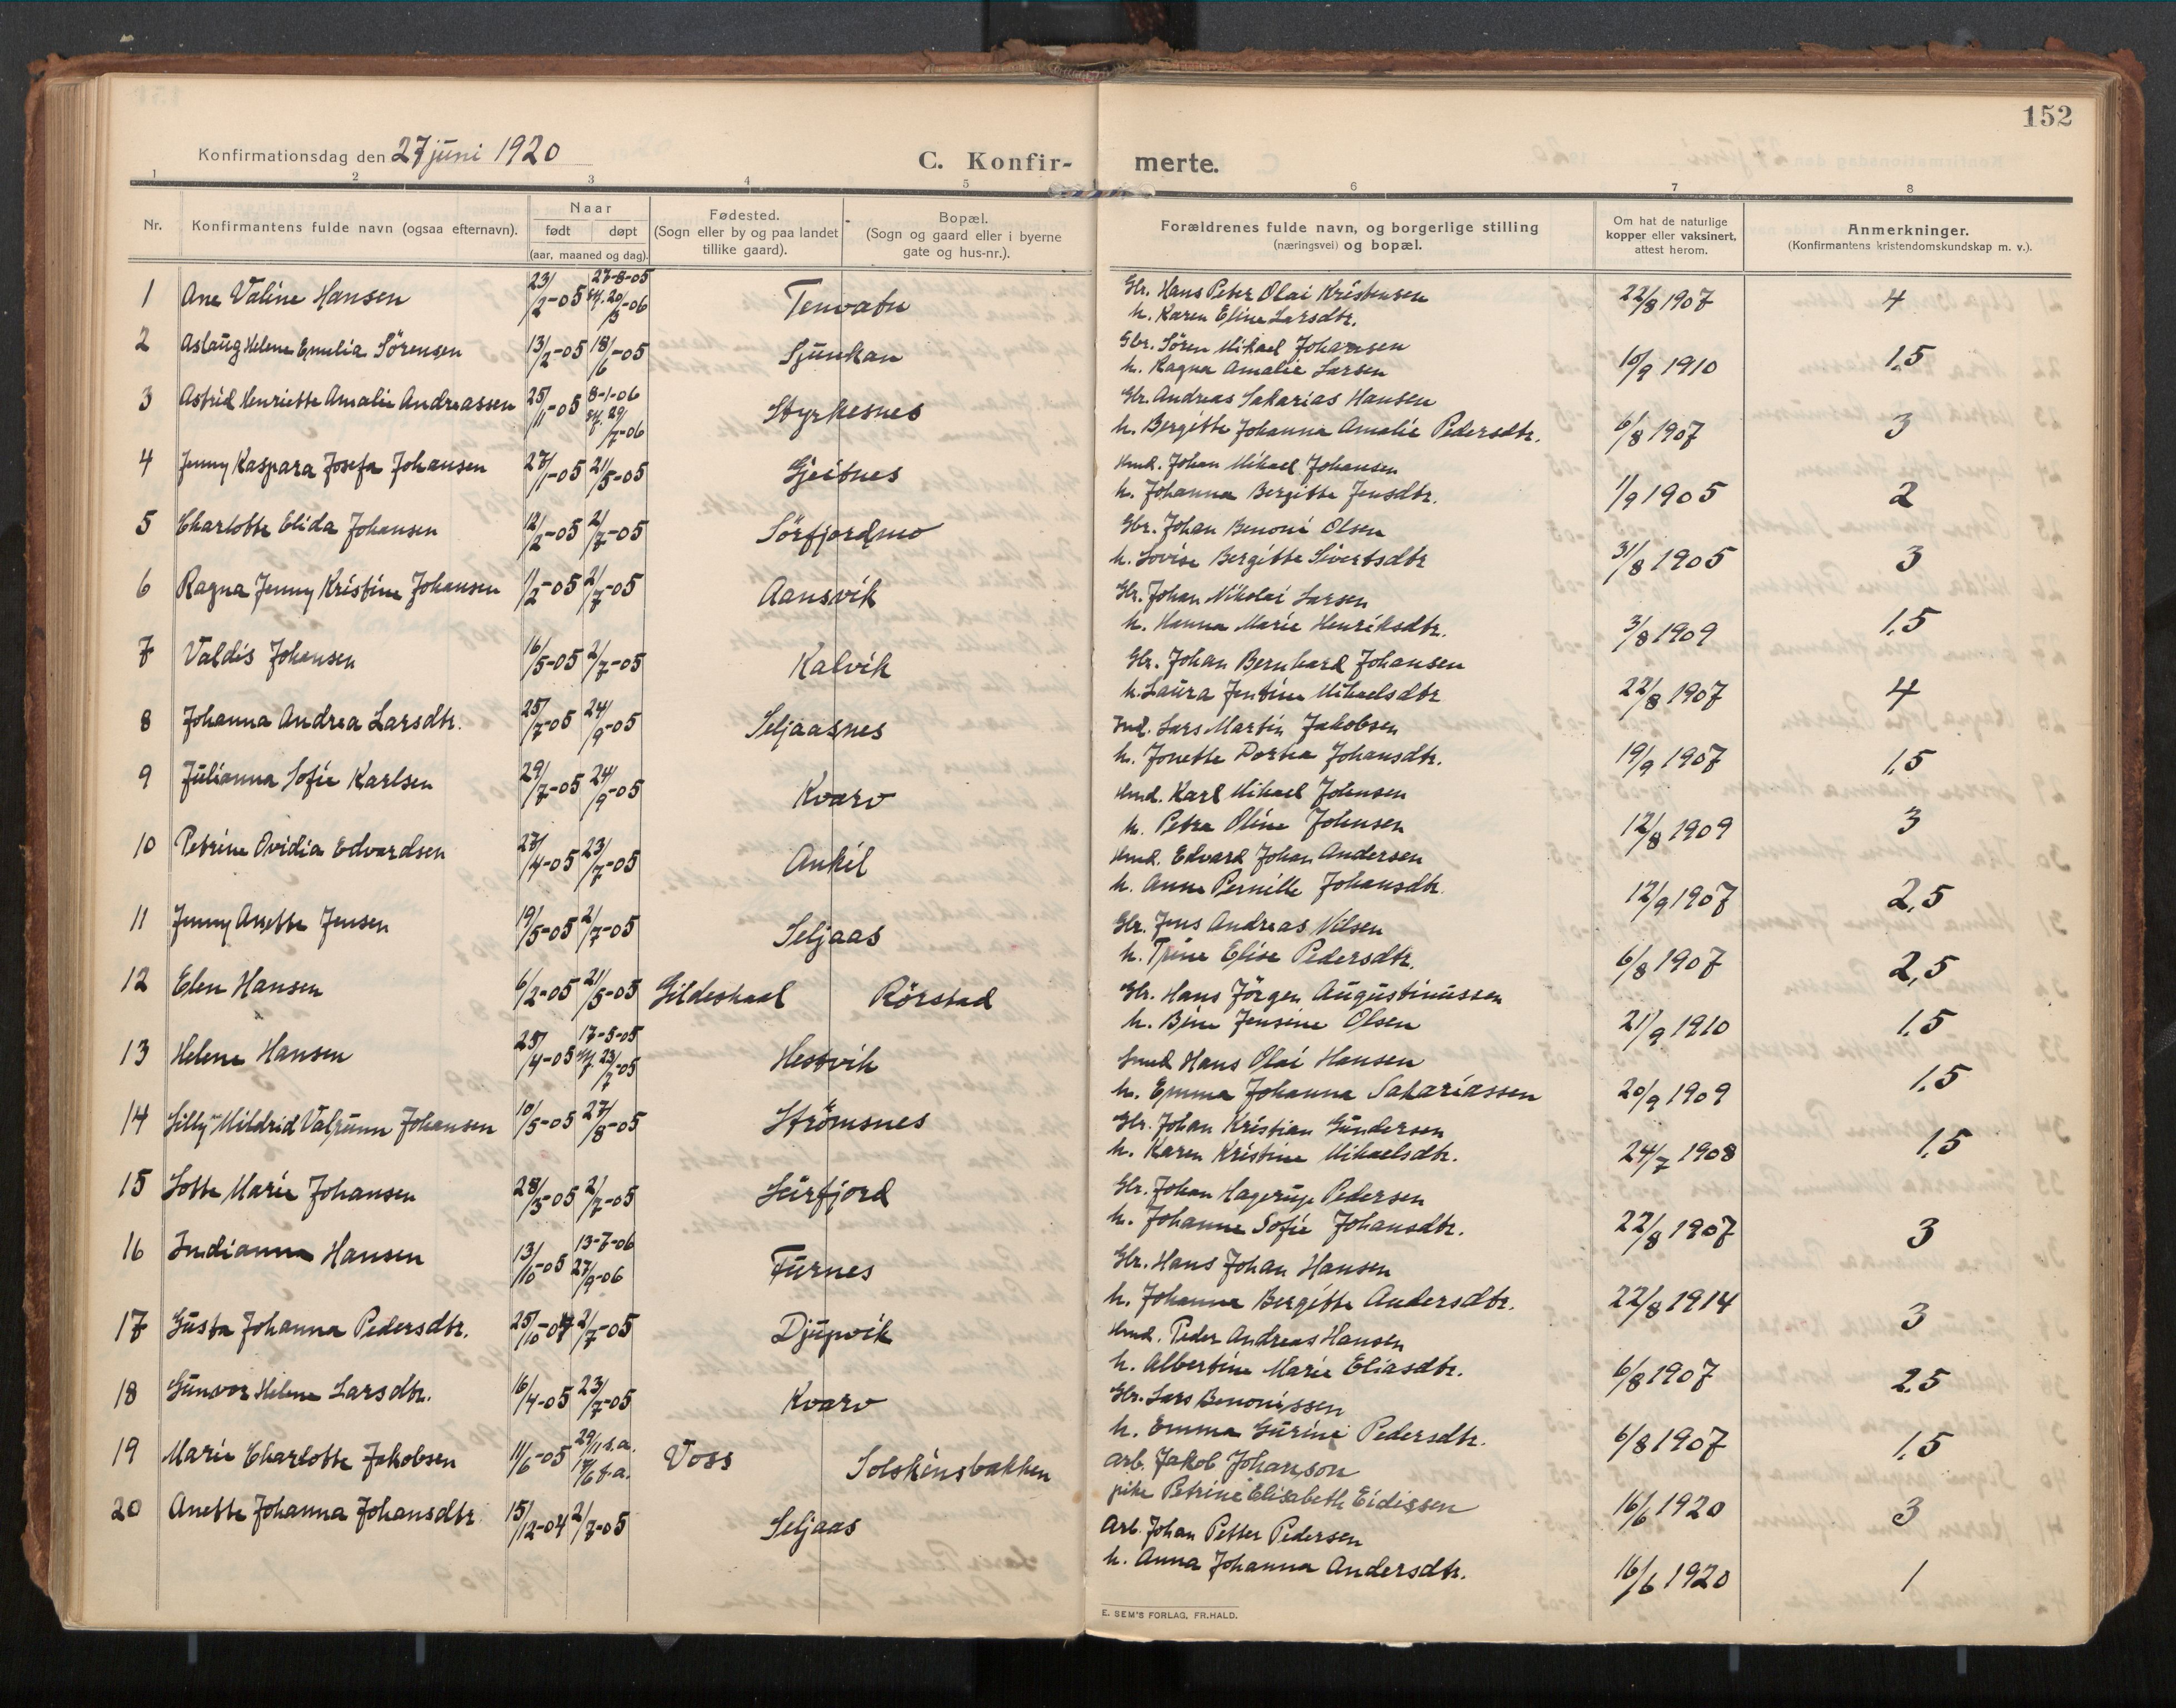 152
Konfirmationsdag den 27 juni 1920 C. Konfir- merte.
1 2 3 4 5 6 7 8
Nr. Konfirmantens fulde navn (ogsaa efternavn). Naar født døpt (aar, maaned og dag). Fødested. (Sogn eller by og paa landet tillike gaard). Bopæl. (Sogn og gaard eller i byerne gate og hus-nr.). Forældrenes fulde navn, og borgerlige stilling (næringsvei) og bopæl. Om hat de naturlige kopper eller vaksinert, attest herom. Anmerkninger. (Konfirmantens kristendomskundskap m. v.).
1 Ane Valine Hansen 23/2-05 27-8-05 20/5-06 Tenvatn Gbr. Hans Peter Olai Kristensen 22/8 1907 4
h. Karen Eline Larsdtr.
2 Aslaug Helene Emelia Sörensen 13/2-05 18/6-05 Sjunkan Gbr. Sören Mikael Johansen 10/9 1910 1,5
h. Ragna Amalie Larsen
3 Astrid Henriette Amalie Andreassen 25/11-05 8-1-06 29/7-06 Styrkesnes Gbr. Andreas Sakarias Hansen 6/8 1907 3
h. Bergitte Johanna Amalie Pedersdtr.
4 Jenny Kaspara Josefa Johansen 27/1-05 21/5-05 Gjeitnes Hmd. Johan Mikael Johansen 1/9 1905 2
h. Johanna Bergitte Jensdtr.
5 Charlotte Elida Johansen 12/2-05 2/7-05 Sörfjordmo Gbr. Johan Benoni Olsen 31/8 1905 3
h. Lovise Bergitte Sivertsdtr
6 Ragna Jenny Kristine Johansen 1/2-05 2/7-05 Aansvik Gbr. Johan Nikolai Larsen 3/8 1909 1,5
h. Hanna Marie Henriksdtr.
7 Valdis Johansen 16/5-05 2/7-05 Kalvik Gbr. Johan Bernhard Johansen 22/8 1907 4
h. Laura Jentine Mikaelsdtr
8 Johanna Andrea Larsdtr. 25/7-05 24/9-05 Seljaasnes Hmd. Lars Martin Jakobsen 19/9 1907 1,5
h. Jonette Dortea Johansdtr.
9 Julianna Sofie Karlsen 29/7-05 24/9-05 Kvarv Hmd. Karl Mikael Johnsen 12/8 1909 3
h. Petra Oline Johnsen
10 Petrine Ovidia Edvardsen 27/4-05 23/7-05 Ankil Hmd. Edvard Johan Andersen 12/9 1907 2,5
h. Anne Pernille Johansdtr.
11 Jenny Anette Jensen 19/5-05 2/7-05 Seljaas Gbr. Jens Andreas Nilsen 6/8 1907 2,5
h. Trine Elise Pedersdtr.
12 Elen Hansen 6/2-05 21/5-05 Gildeskaal Rörstad Gbr. Hans Jörgen Augustinussen 21/9 1910 1,5
h. Bine Jensine Olsen
13 Helene Hansen 25/4-05 17-5-05 23/7-05 Hestvik Smd Hans Olai Hansen 20/9 1909 1,5
h. Emma Johanna Sakariassen
14 Lilly Mildrid Valgunn Johansen 10/5-05 27/8-05 Strömsnes Gbr. Johan Kristian Gundersen 24/7 1908 1,5
h. Karen Kristine Mikaelsdtr.
15 Lotte Marie Johansen 28/3-05 2/7-05 Leirfjord Gbr. Johan Hagerup Pedersen 22/8 1907 3
h. Johanne Sofie Johansdtr.
16 Indianna Hansen 13/10-05 13-7-06 27/9-06 Furnes Gbr. Hans Johan Hansen 22/8 1914 3
h. Johanna Bergitte Andersdtr.
17 Gusta Johanna Pedersdtr. 25/10-04 2/7-05 Djupvik Hmd. Peder Andreas Hansen 6/8 1907 2,5
h. Albertine Marie Eliasdtr.
18 Gunvor Helene Larsdtr. 16/4-05 23/7-05 Kvarv Gbr. Lars Benonissen 6/8 1907 1,5
h. Emma Gurine Pedersdtr.
19 Marie Charlotte Jakobsen 11/6-05 29/11 s.a. Voss Solskinsbakken Arb. Jakob Johanson 16/6 1920 3
pike Petrine Elisabeth Eidissen
20 Anette Johanna Johansdtr. 15/12-04 2/7-05 Seljaas Arb. Johan Petter Pedersen 16/6 1920 1
h. Anna Johanna Andersdtr.
E. SEM'S FORLAG, FR.HALD.